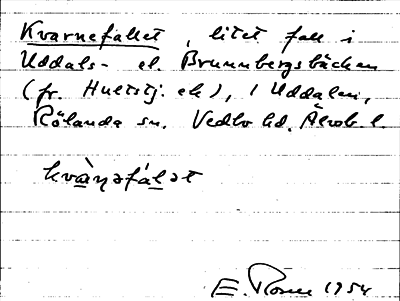 Kvarnefallet, litet fall i
Uddals- el. Brunnbergsbäcken
(fr. Hultstj. etc), i Uddalen,
Rölanda sn. Vedbo hd. Älvsb. l.
kvàṇəfálət
E. Rosen 1954